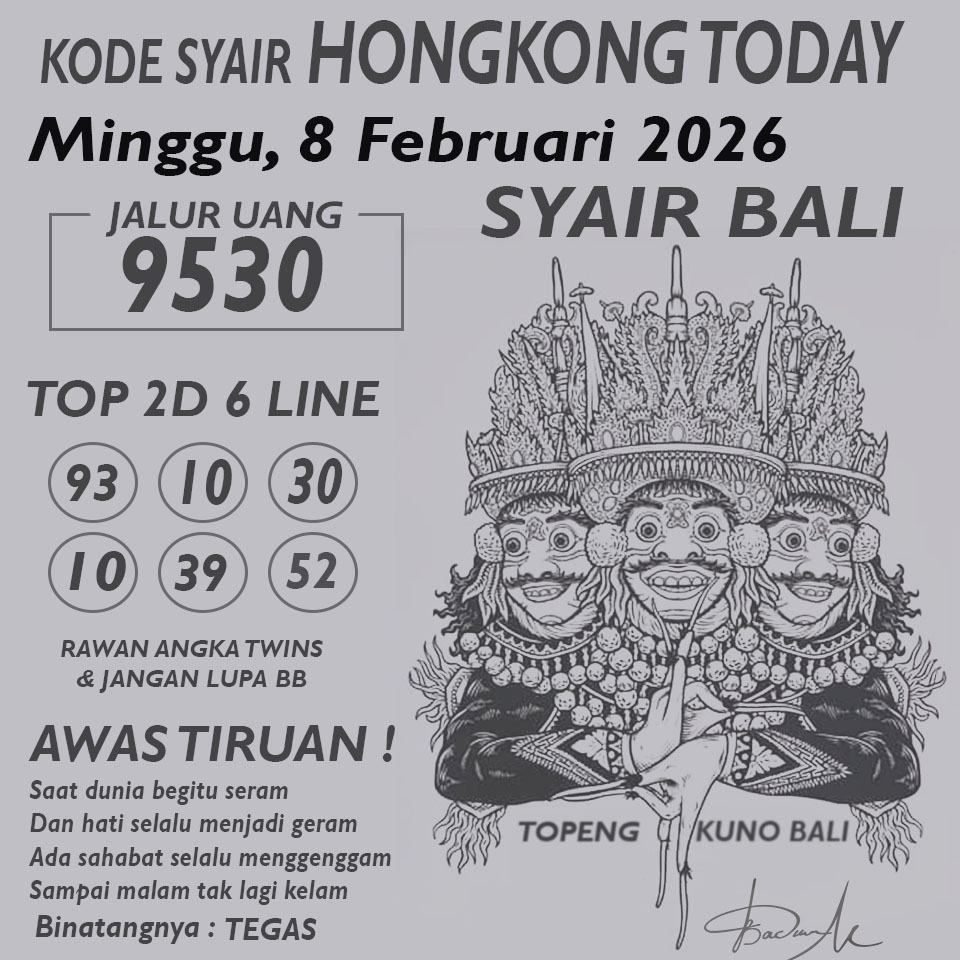 KODE SYAIR HONGKONG TODAY
Minggu, 8 Februari 2026
SYAIR BALI
JALUR UANG
9530
TOP 2D 6 LINE
93 10 30
10 39 52
RAWAN ANGKA TWINS
& JANGAN LUPA BB
AWAS TIRUAN !
Saat dunia begitu seram
Dan hati selalu menjadi geram
Ada sahabat selalu menggenggam
Sampai malam tak lagi kelam
Binatangnya : TEGAS
TOPENG KUNO BALI